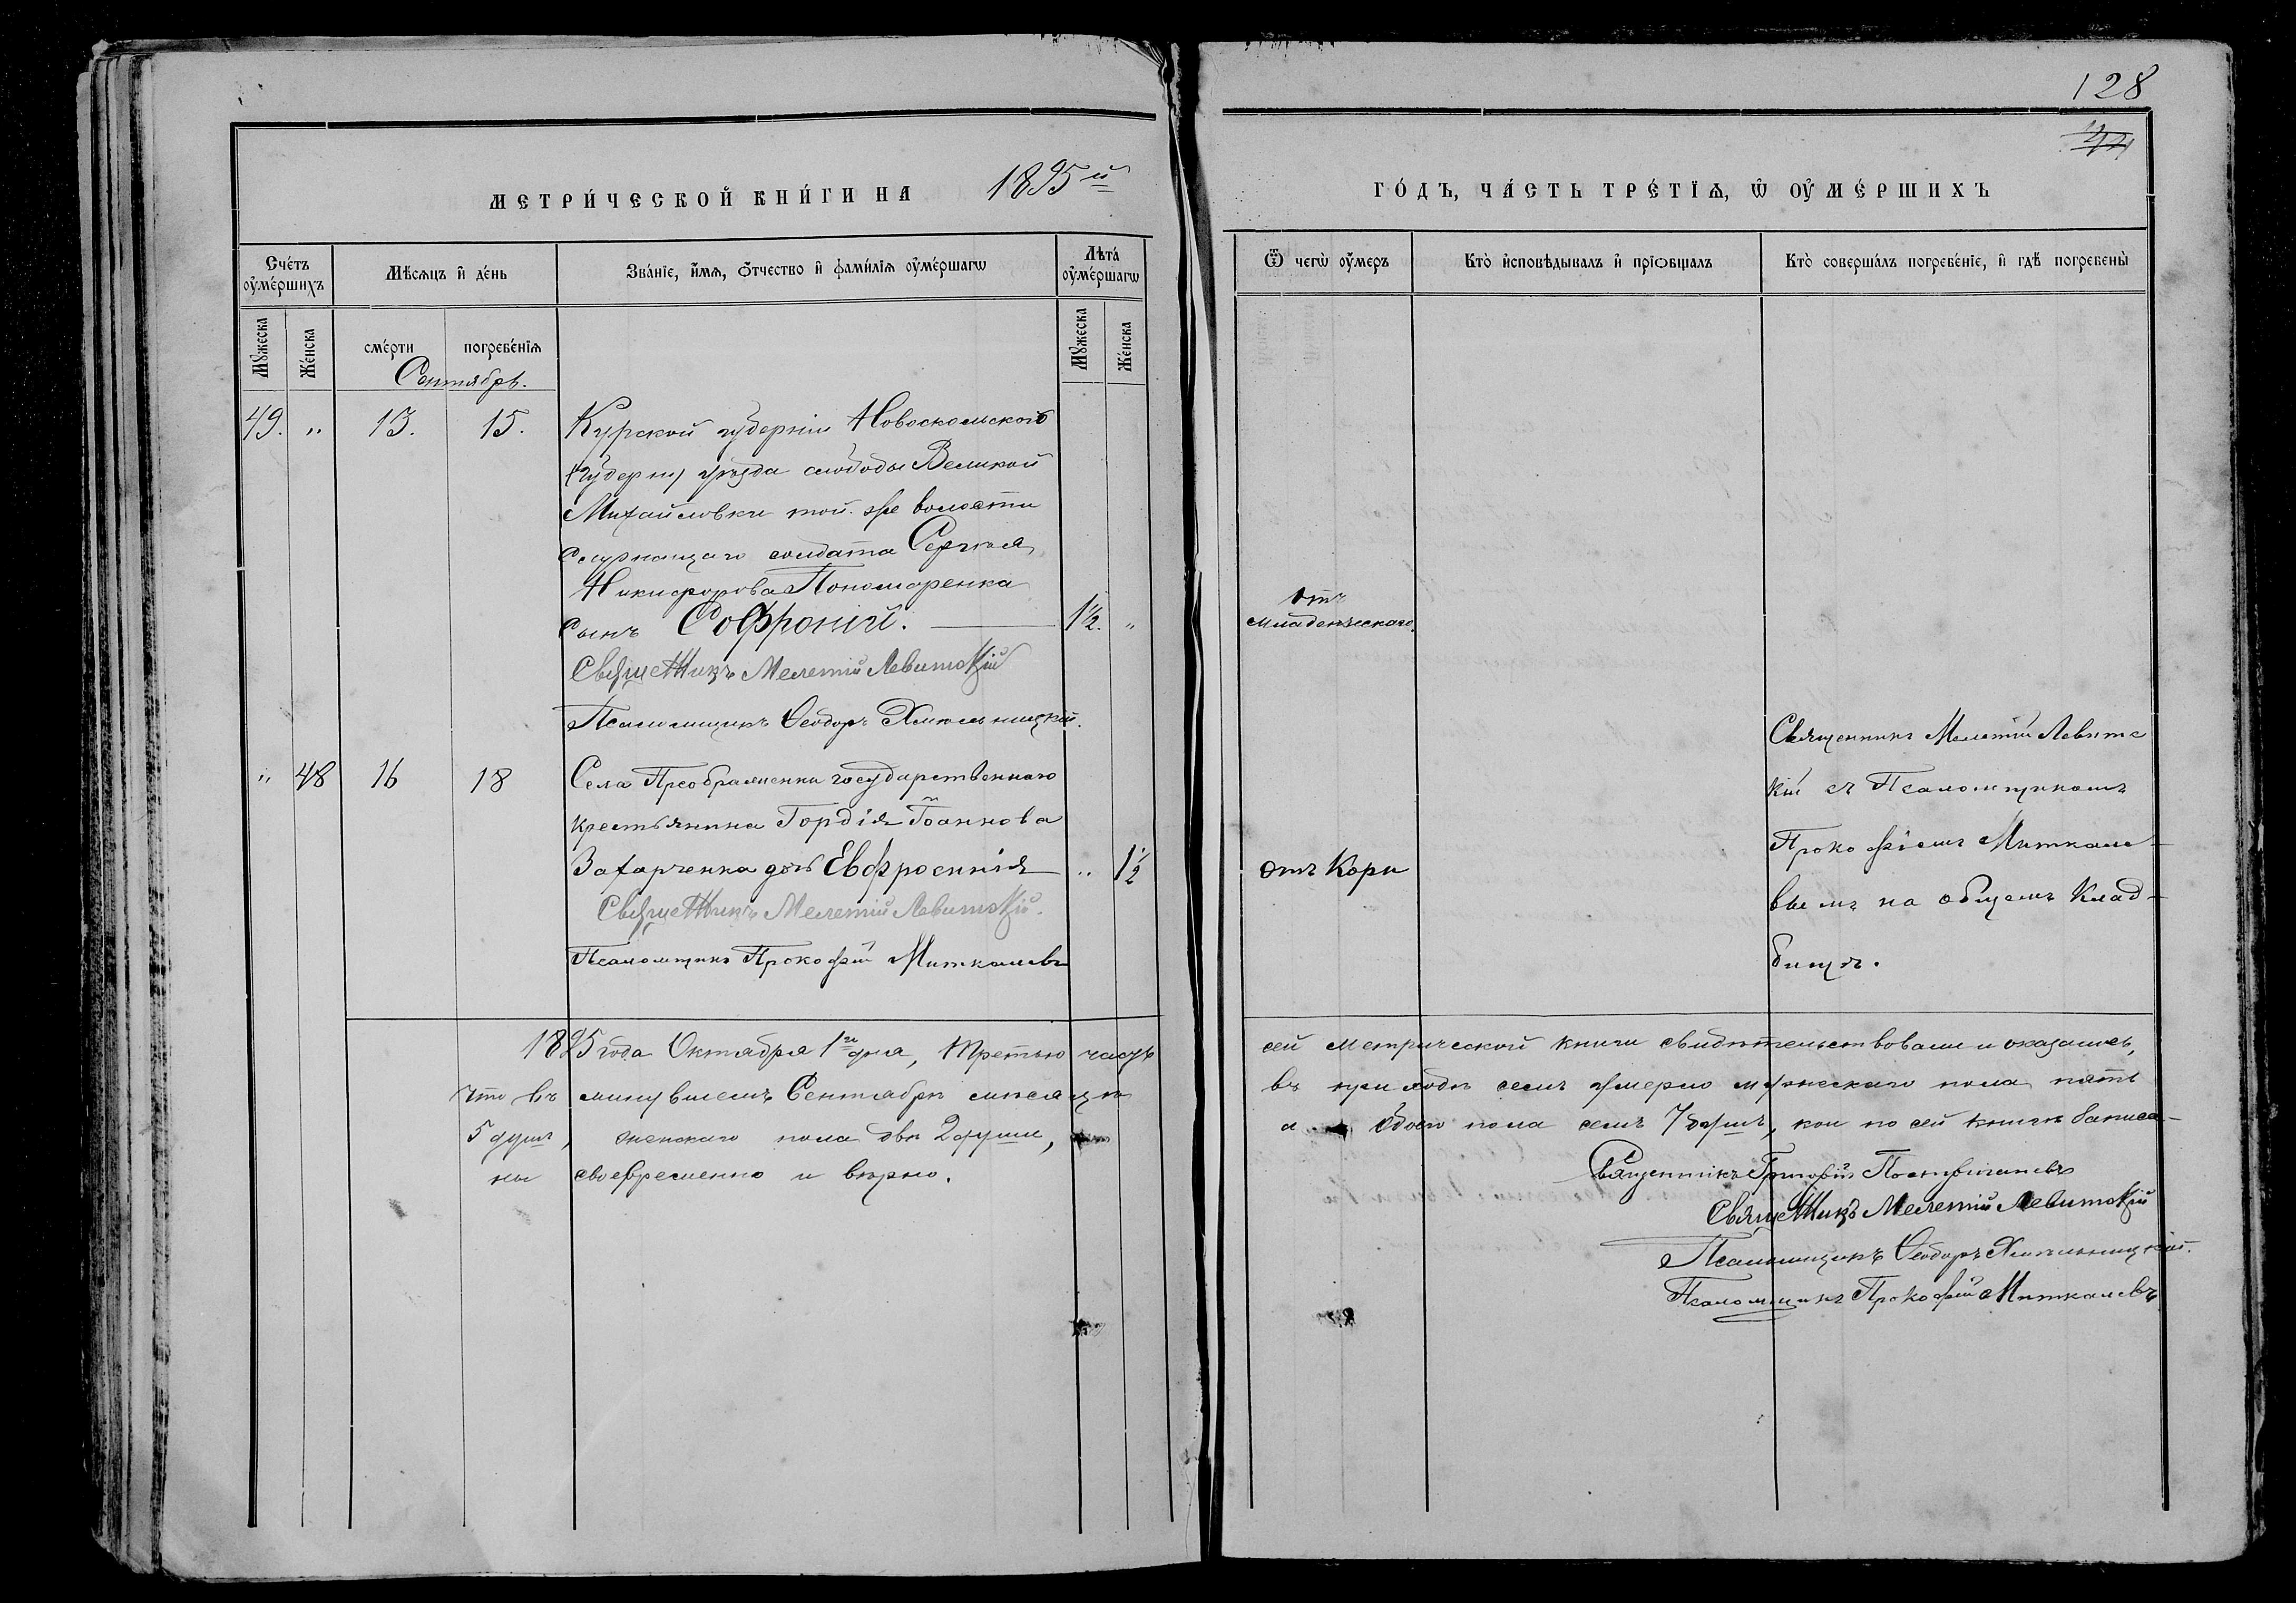 128
МЕТРИ́ЧЕСКОЙ КНИ́ГИ НА 1895й
ГО́ДЪ, ЧА́СТЬ ТРЕ́ТЇѦ, Ѡ҆ ОУ҆МЕ́РШИХЪ
Сче́тъ оу҆ме́ршихъ
Мѣ́сѧцъ и҆ де́нь
Зва́нїе, и҆́мѧ, ѻ҆́тчество и҆ фами́лїѧ оу҆ме́ршагѡ
Лѣта́ оу҆ме́ршагѡ
Ѿ чегѡ̀ оу҆́меръ
Кто̀ и҆сповѣ́дывалъ и҆ прїѡбща́лъ
Кто̀ соверша́лъ погребе́нїе, и҆ гдѣ̀ погребены̀
Мꙋ́жеска
Же́нска
сме́рти
погребе́нїѧ
Мꙋ́жеска
Же́нска
Сентябрь.
49. „ 13. 15. Курской губерніи Новооскольскаго
(губерн) уѣзда слободы Великой
Михайловки той-же волости
служащаго солдата Сергѣя
Никифорова Пономаренка
сынъ Софроній. 1½. „
отъ
младенческаго.
Священникъ Мелетій Левитскій
Псаломщикъ Ѳеодоръ Хмельницкій.
„ 48 16 18 Села Преображенки государственнаго
крестьянина Гордія Іоаннова
Захарченка дочь Евфросинія „ 1½
отъ Кори
Священникъ Мелетій Левитскій.
Псаломщикъ Прокофій Миткалевъ
Священникъ Мелетій Левитс
кій съ Псаломщикомъ
Прокофіемъ Миткале-
вымъ на общемъ клад-
бищѣ.
1895 года Октября 1го дня, третью часть сей метрической книги свидѣтельствовали и оказалось,
что въ минувшемъ Сентябрѣ мѣсяцѣ въ приходѣ семъ умерло мужескаго пола пять
5 душъ, женскаго пола двѣ 2 души, а обоего пола семь 7 душъ, кои по сей книгѣ записа-
ны своевременно и вѣрно.
Священникъ Григорій
Священникъ Мелетій Левитскій
Псаломщикъ Ѳеодоръ Хмельницкій.
Псаломщикъ Прокофій Миткалевъ